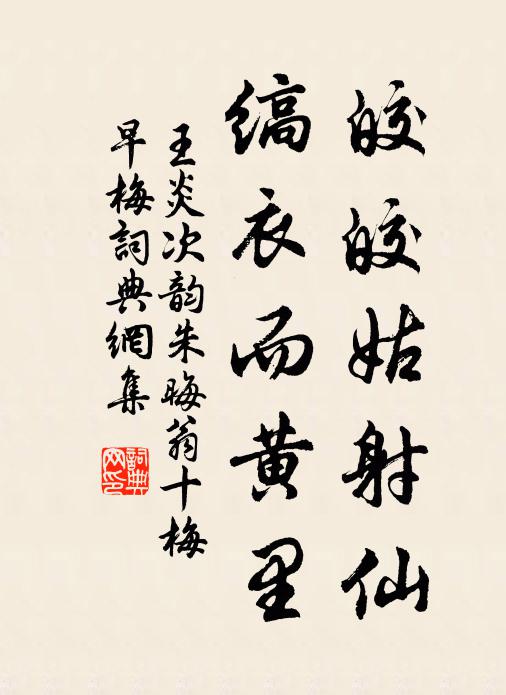 皎皎姑射仙
缟衣而黄里
王炎次韵朱晦翁十梅
早梅詞典網集
詞典
网印